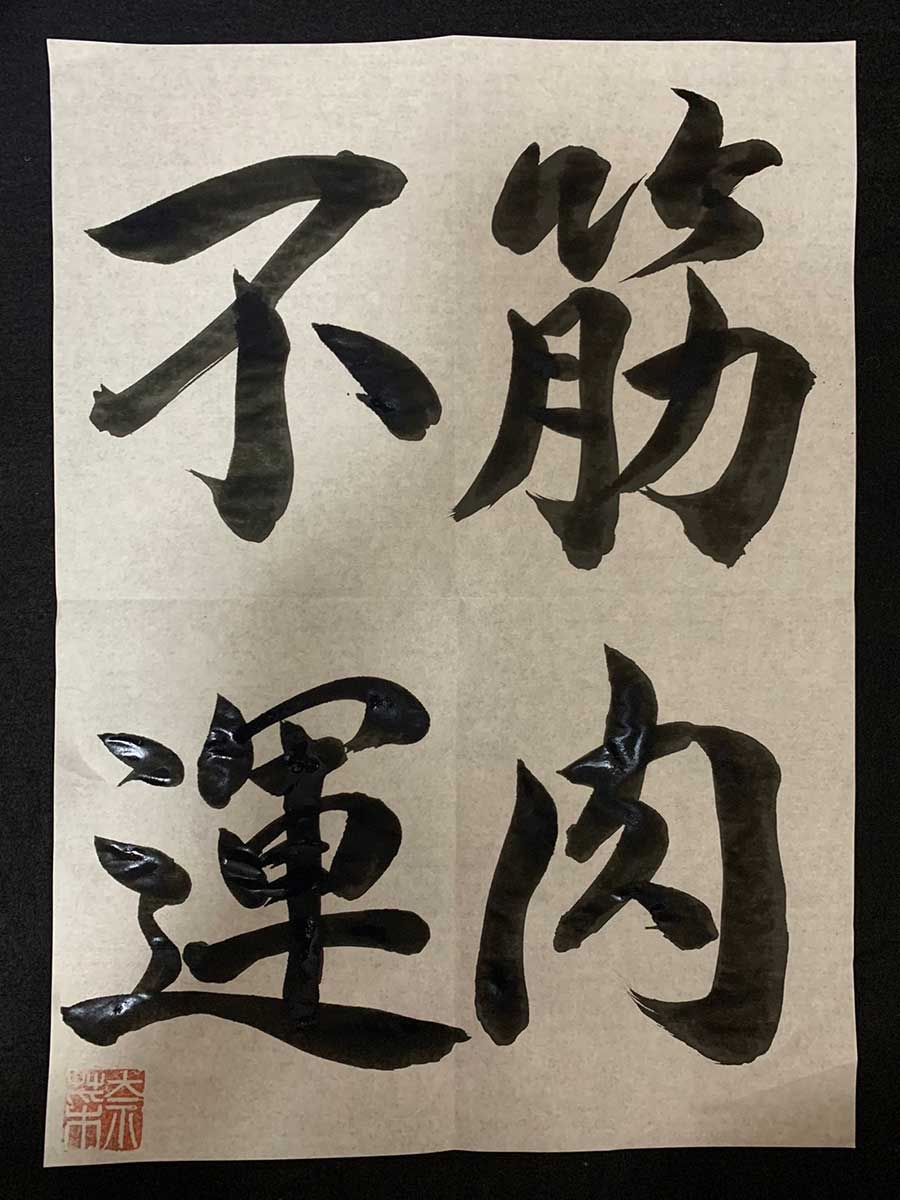 筋肉
不運